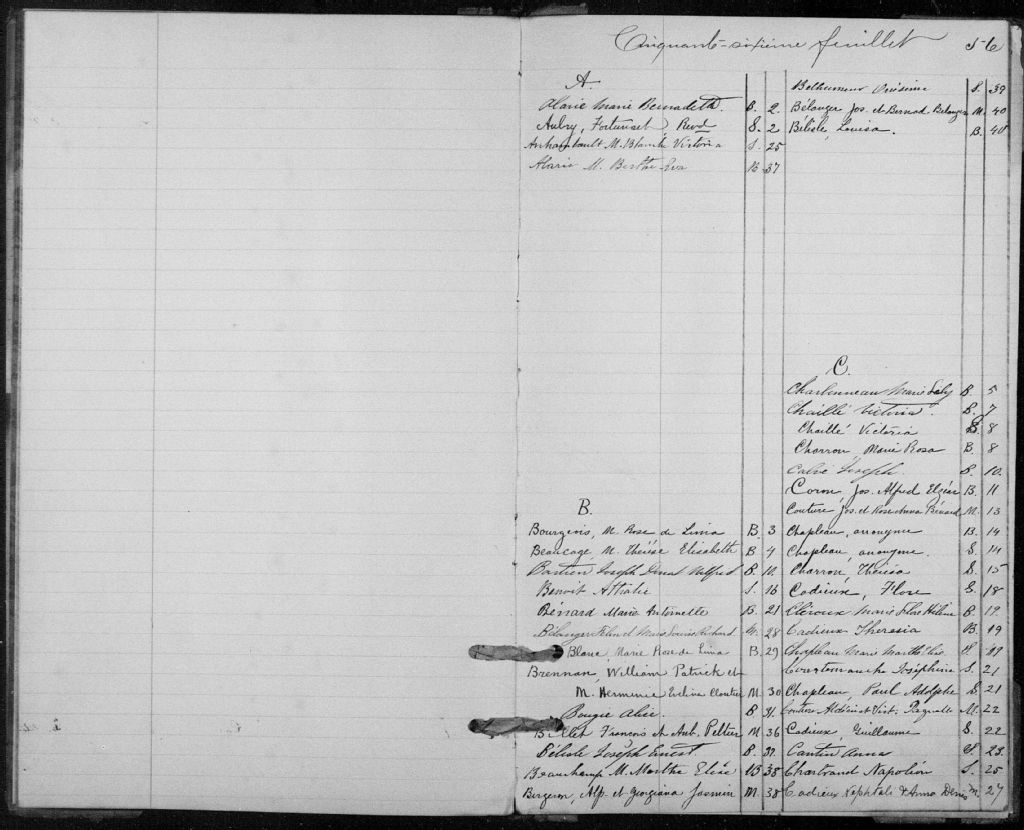 Cinquante-sixième feuillet 56
A.
Alarie Marie Bernadeth. B. 2.
Aubry, Fortunat, Revd S. 2
Archambault M. Blanche Victoria S. 25
Alarie M. Berthe Eva B 37
B.
Bourgeois, M. Rose de Lima B. 3
Beaucage, M. Thérèse Elisabeth B 4
Bastien Joseph Donat Wilfred B. 10
Benoit Athalie S. 16
Bénard Marie Antoinette B. 21
Bélanger et Marie Louise Richard M. 28
Blane, Marie Rose de Lima B. 29
Brennan, William Patrick et
M. Herminie Evelina Cloutier M. 30
Bougie Alice B. 31.
Billet François et Ant. Peltier M. 36
Bélisle Joseph Ernest B. 37.
Beauchamp M. Marthe Elise B 38
Bergeron, Alp. et Georgiana Jasmin M. 38
Bethumeur Onésime S. 39
Bélanger Jos. et Bernad. Belanger M. 40
Bélisle, Louisa. B. 40
C.
Charbonneau Marie B. 5
Chaillé Victoria. B. 7
Chaillé Victoria S. 8
Charron, Marie Rosa B. 8
Calvé Joseph S. 10.
Coron, Jos. Alfred Elzéar B. 11
Couture Jos. et Rose Anna Bénard M. 13
Chapleau, anonyme B. 14
Chapleau, anonyme. S. 14
Charron, Thérèsa S. 15
Cadieux, Flore S. 18
Cléroux Marie Flore Hélène B. 19
Cadieux Theresia B. 19
Chapleau Marie Marthe S. 19
Courtemanche Joséphine S. 21
Chapleau, Paul Adolphe S. 21
Couture et Vict. Paquette M. 22
Cadieux, Guillaume S. 22
Cantin Anna S. 23.
Chartrand Napoléon S. 25
Cadieux Nephtali & Anna Denis M. 27